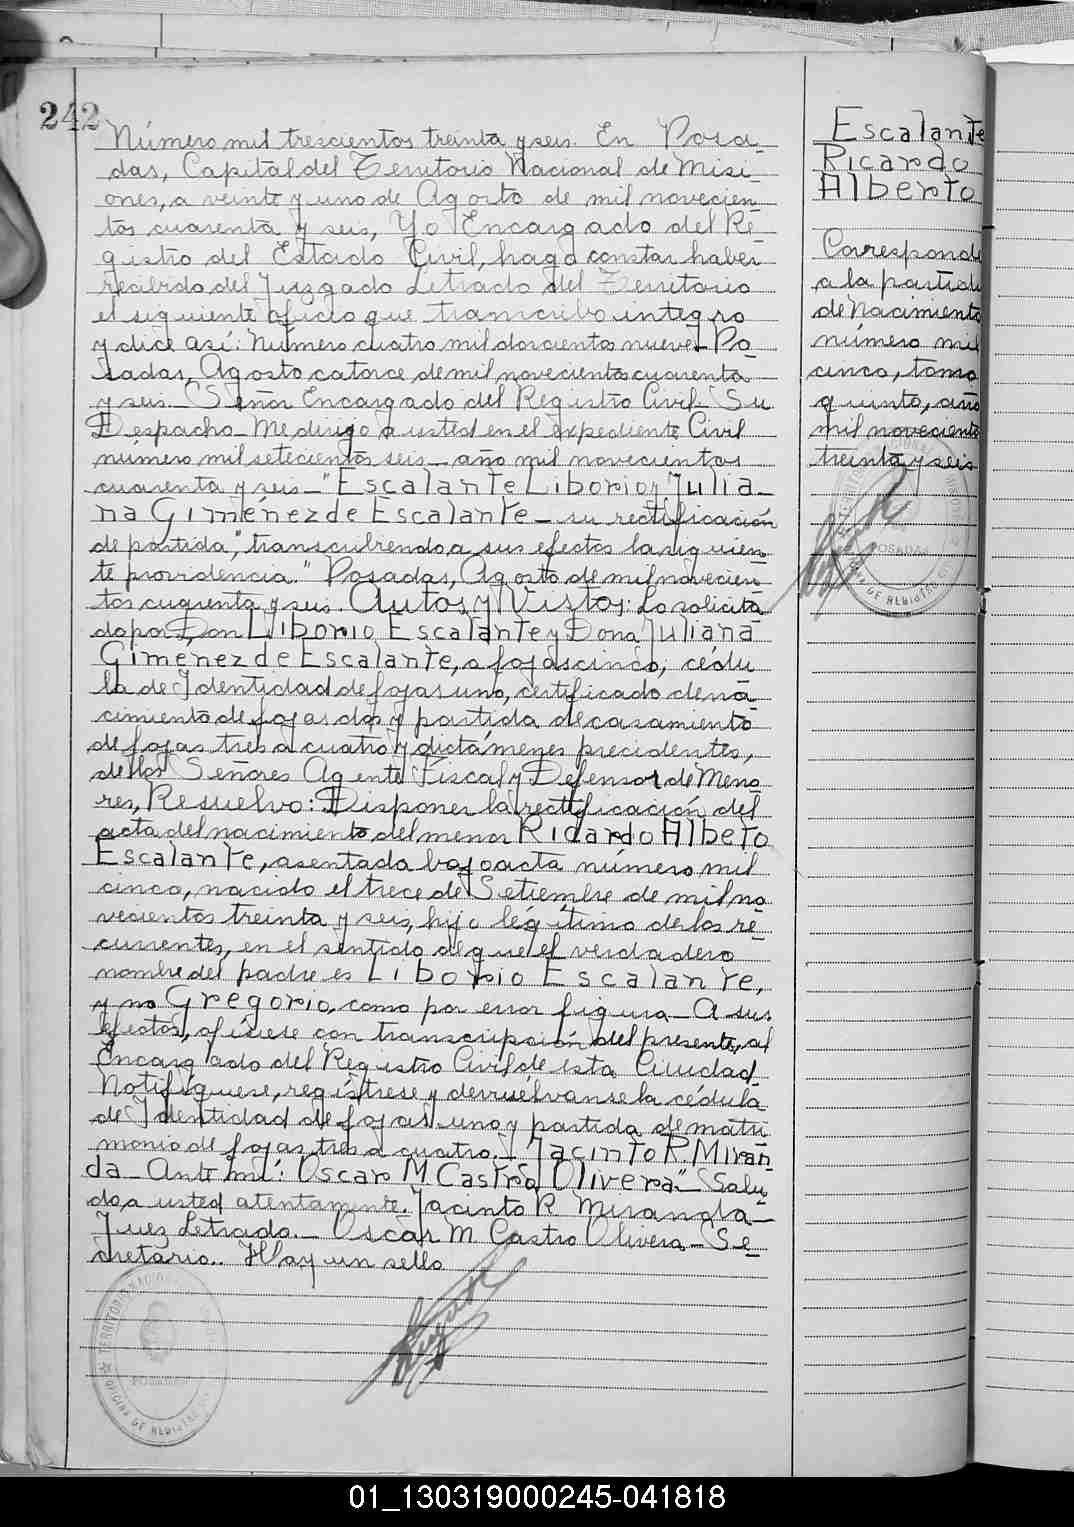 242
Número mil trescientos treinta y seis. En Posa-
das, Capital del Territorio Nacional de Misi-
ones, a veinte y uno de Agosto de mil novecien-
tos cuarenta y seis, Yo Encargado del Re-
gistro del Estado Civil, hago constar haber
recibido del Juzgado Letrado del Territorio
el siguiente oficio que transcribo integro
y dice así: Número cuatro mil doscientos nueve - Po-
sadas, Agosto catorce de mil novecientos cuarenta
y seis - Señor Encargado del Registro Civil. Su
Despacho - Me dirijo a usted en el expediente Civil
número mil setecientos seis - año mil novecientos
cuarenta y seis - "Escalante Liborio y Julia-
na Giménez de Escalante - su rectificación
de partida", transcribiendo a sus efectos la siguien-
te providencia. "Posadas, Agosto de mil novecien-
tos cuarenta y seis. Autos y Vistos: Lo solicita
do por Don Liborio Escalante y Dona Juliana
Giménez de Escalante, a fojas cinco; cédu
la de Identidad de fojas uno, certificado de na-
cimiento de fojas dos y partida de casamiento
de fojas tres a cuatro y dictámenes precidentes,
de los Señores Agente Fiscal y Defensor de Meno
res, Resuelvo: Disponer la rectificación del
acta del nacimiento del menor Ricardo Albeto
Escalante, asentada bajo acta número mil
cinco, nacido el trece de Setiembre de mil no
vecientos treinta y seis, hijo legítimo de los re-
currentes, en el sentido de que el verdadero
nombre del padre es Liborio Escalante,
y no Gregorio, como por error figura - A sus
efectos, ofíciese con transcripción del presente, al
Encargado del Registro Civil de esta Ciudad
Notifíquese, regístrese y devuélvanse la cédula
de Identidad de fojas uno y partida de matri
monio de fojas tres a cuatro. - Jacinto R. Miran-
da - Ante mí: Oscar M Castro Olivera." - Salu-
do a usted atentamente. Jacinto R Miranda -
Juez Letrado. - Oscar M Castro Olivera - Se-
cretario.. Hay un sello
Escalante
Ricardo
Alberto
Corresponde
a la partida
de nacimiento
número mil
cinco, tomo
quinto, año
mil novecientos
treinta y seis
POSADAS
01_130319000245-041818